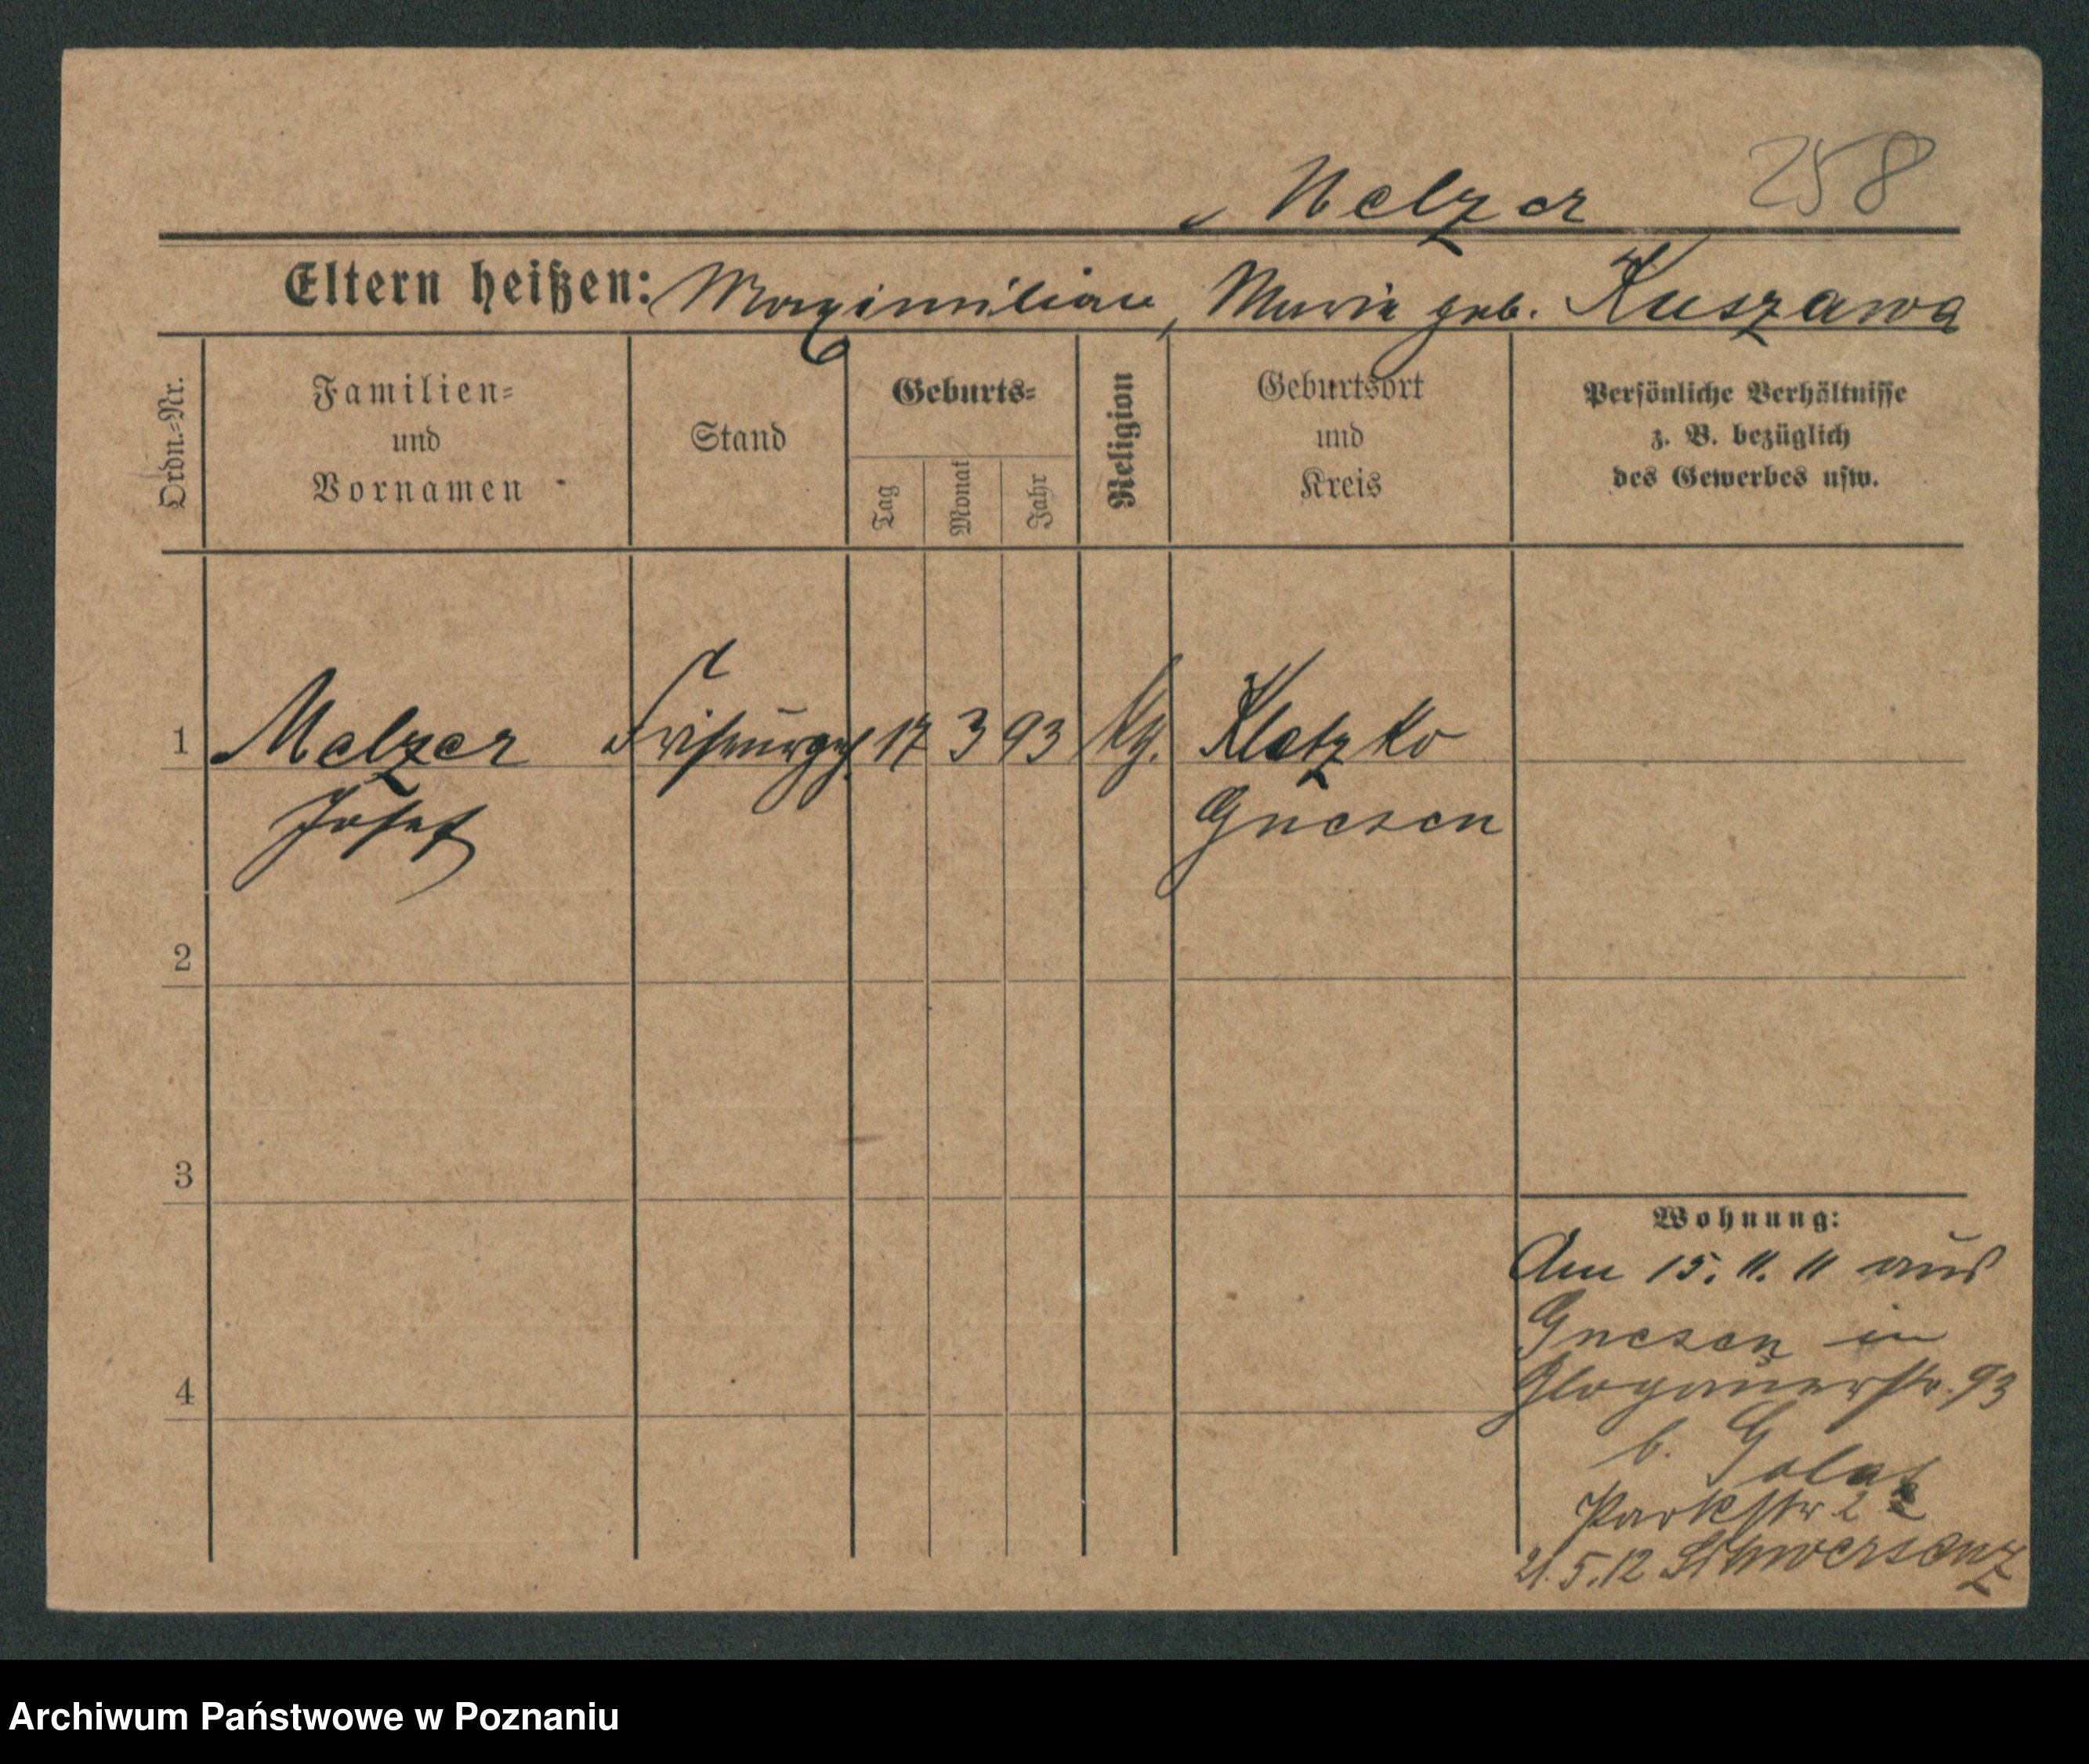 258
Melzer
Eltern heißen: Maximilian, Maria geb. Kuszawa
Ordn.-Nr.
Familien-
und
Vornamen
Stand
Geburts-
Tag
Monat
Jahr
Religion
Geburtsort
und
Kreis
Persönliche Verhältnisse
z. B. bezüglich
des Gewerbes usw.
1 Melzer Friseurgeh. 17 3 93 Kg. Kletzko
Josef Gnesen
2
3
4
Wohnung:
Am 15. 11. 11 aus
Gnesen in
Glogauerstr. 93
b. Golat
Parkstr 2
21. 5. 12 Schwersenz
Archiwum Państwowe w Poznaniu